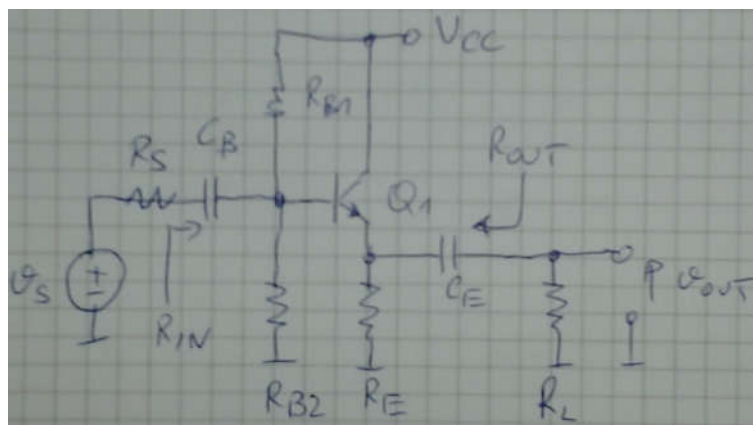 VCC
RB1
CB
RS
ROUT
Q1
+
-
vS
RIN
CE
vOUT
RB2
RE
RL